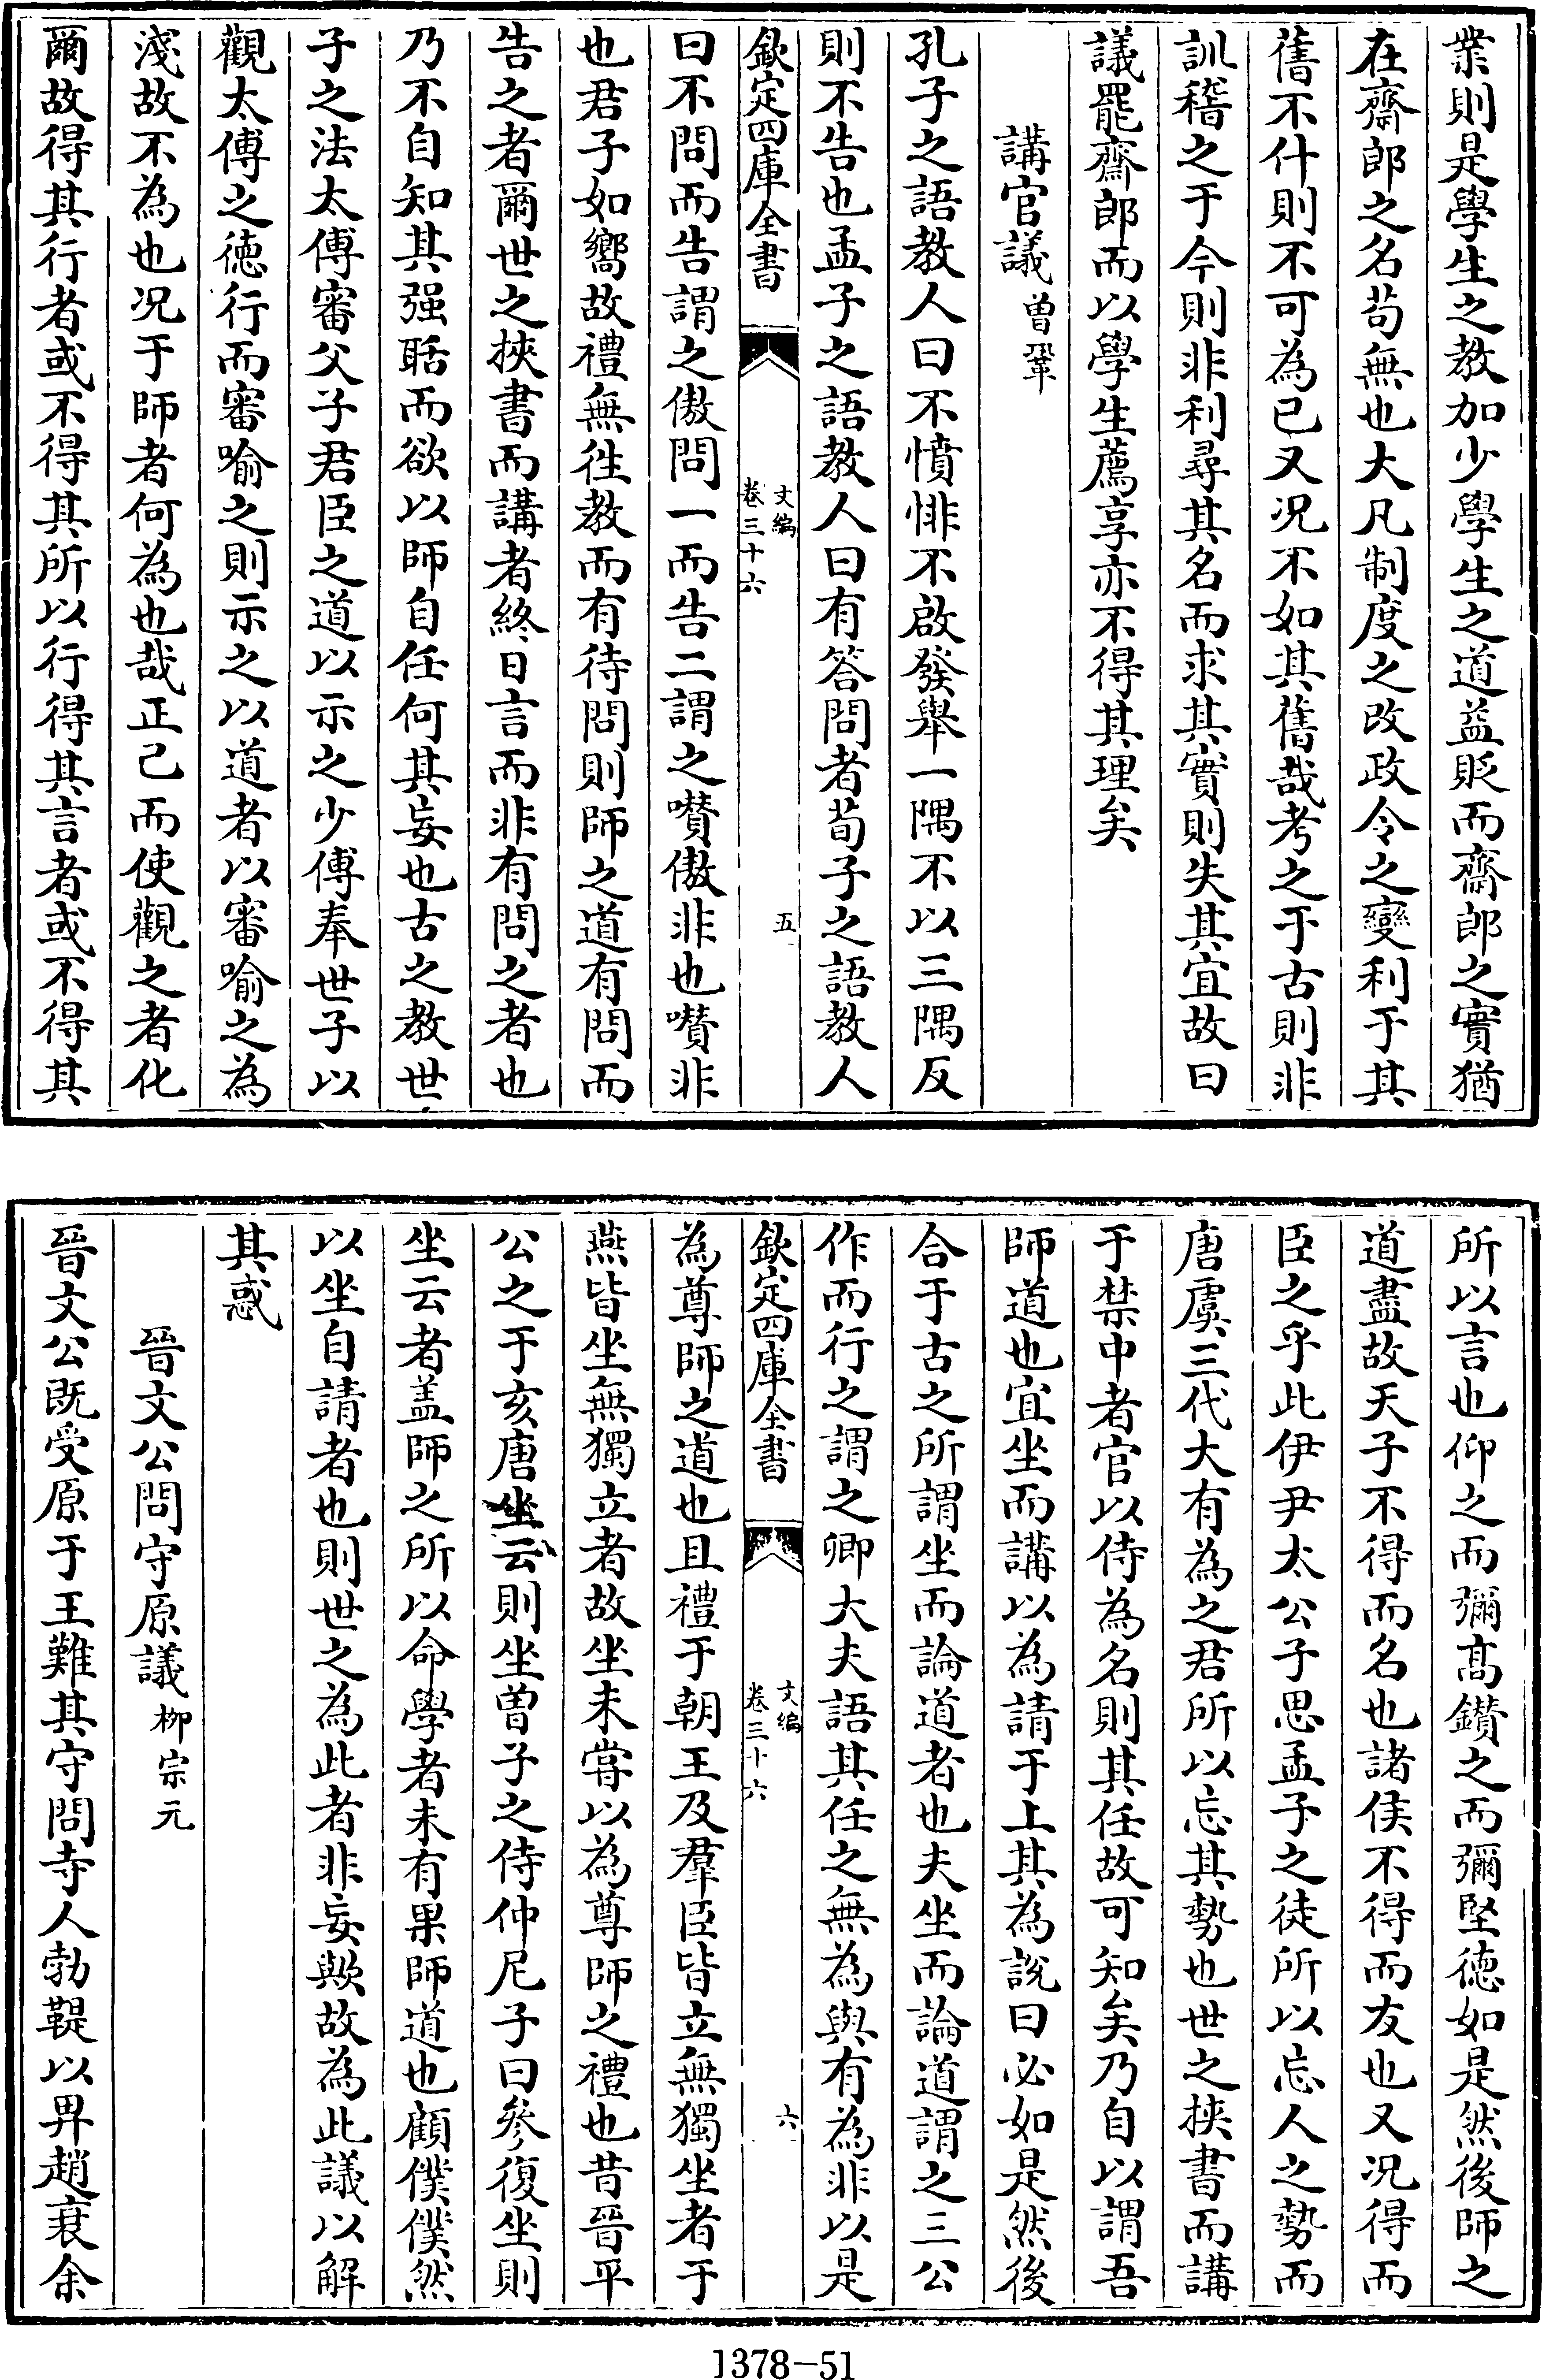 業則是學生之教加少學生之道益貶而齋郎之實猶
在齋郎之名苟無也大凡制度之改政令之變利于其
舊不什則不可為已又况不如其舊哉考之于古則非
訓稽之于今則非利尋其名而求其實則失其宜故曰
議罷齋郎而以學生薦享亦不得其理矣
講官議 曾鞏
孔子之語教人曰不憤悱不啟發舉一隅不以三隅反
則不告也孟子之語教人曰有答問者荀子之語教人
欽定四庫全書 文編 卷三十六 五
曰不問而告謂之傲問一而告二謂之囋傲非也囋非
也君子如嚮故禮無徃教而有待問則師之道有問而
告之者爾世之挾書而講者終日言而非有問之者也
乃不自知其强聒而欲以師自任何其妄也古之教世
子之法太傅審父子君臣之道以示之少傅奉世子以
觀太傅之徳行而審喻之則示之以道者以審喻之為
淺故不為也况于師者何為也哉正己而使觀之者化
爾故得其行者或不得其所以行得其言者或不得其
所以言也仰之而彌髙鑽之而彌堅徳如是然後師之
道盡故天子不得而名也諸侯不得而友也又况得而
臣之乎此伊尹太公子思孟子之徒所以忘人之勢而
唐虞三代大有為之君所以忘其勢也世之挾書而講
于禁中者官以侍為名則其任故可知矣乃自以謂吾
師道也宜坐而講以為請于上其為說曰必如是然後
合于古之所謂坐而論道者也夫坐而論道謂之三公
作而行之謂之卿大夫語其任之無為與有為非以是
欽定四庫全書 文編 卷三十六 六
為尊師之道也且禮于朝王及羣臣皆立無獨坐者于
燕皆坐無獨立者故坐未甞以為尊師之禮也昔晉平
公之于亥唐坐云則坐曽子之侍仲尼子曰參復坐則
坐云者盖師之所以命學者未有果師道也顧僕僕然
以坐自請者也則世之為此者非妄歟故為此議以解
其惑
晉文公問守原議 栁宗元
晉文公既受原于王難其守問寺人勃鞮以畀趙衰余
1378-51